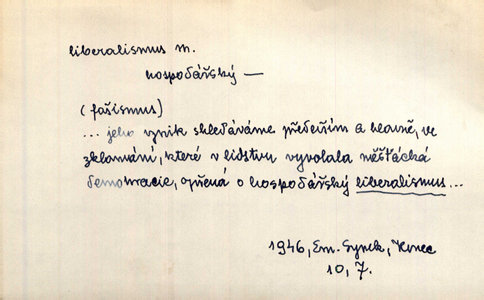 liberalismus m.
hospodářský —
(fašismus)
... jeho vznik shledáváme především a hlavně, ve
zklamání, které v lidstvu vyvolala měšťácká
demokracie, opřená o hospodářský liberalismus ...
1946, Em. Synek, Konec
10, 7.